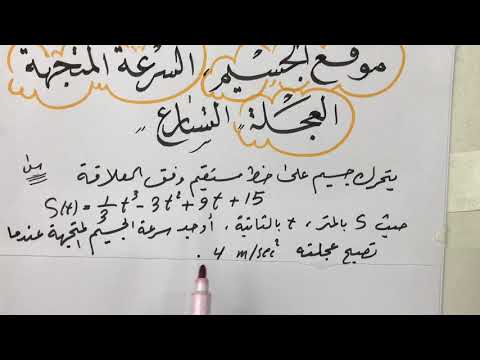 موقع الجسيم, السرعة المتجهة
العجلة " التسارع "
مثال يتحرك جسيم على خط مستقيم وفق العلاقة
S(t) = 1/3 t³ - 3t² + 9t + 15
حيث S بالمتر, t بالثانية, أوجد سرعة الجسيم المتجهة عندما
تصبح عجلته 4 m/sec² .